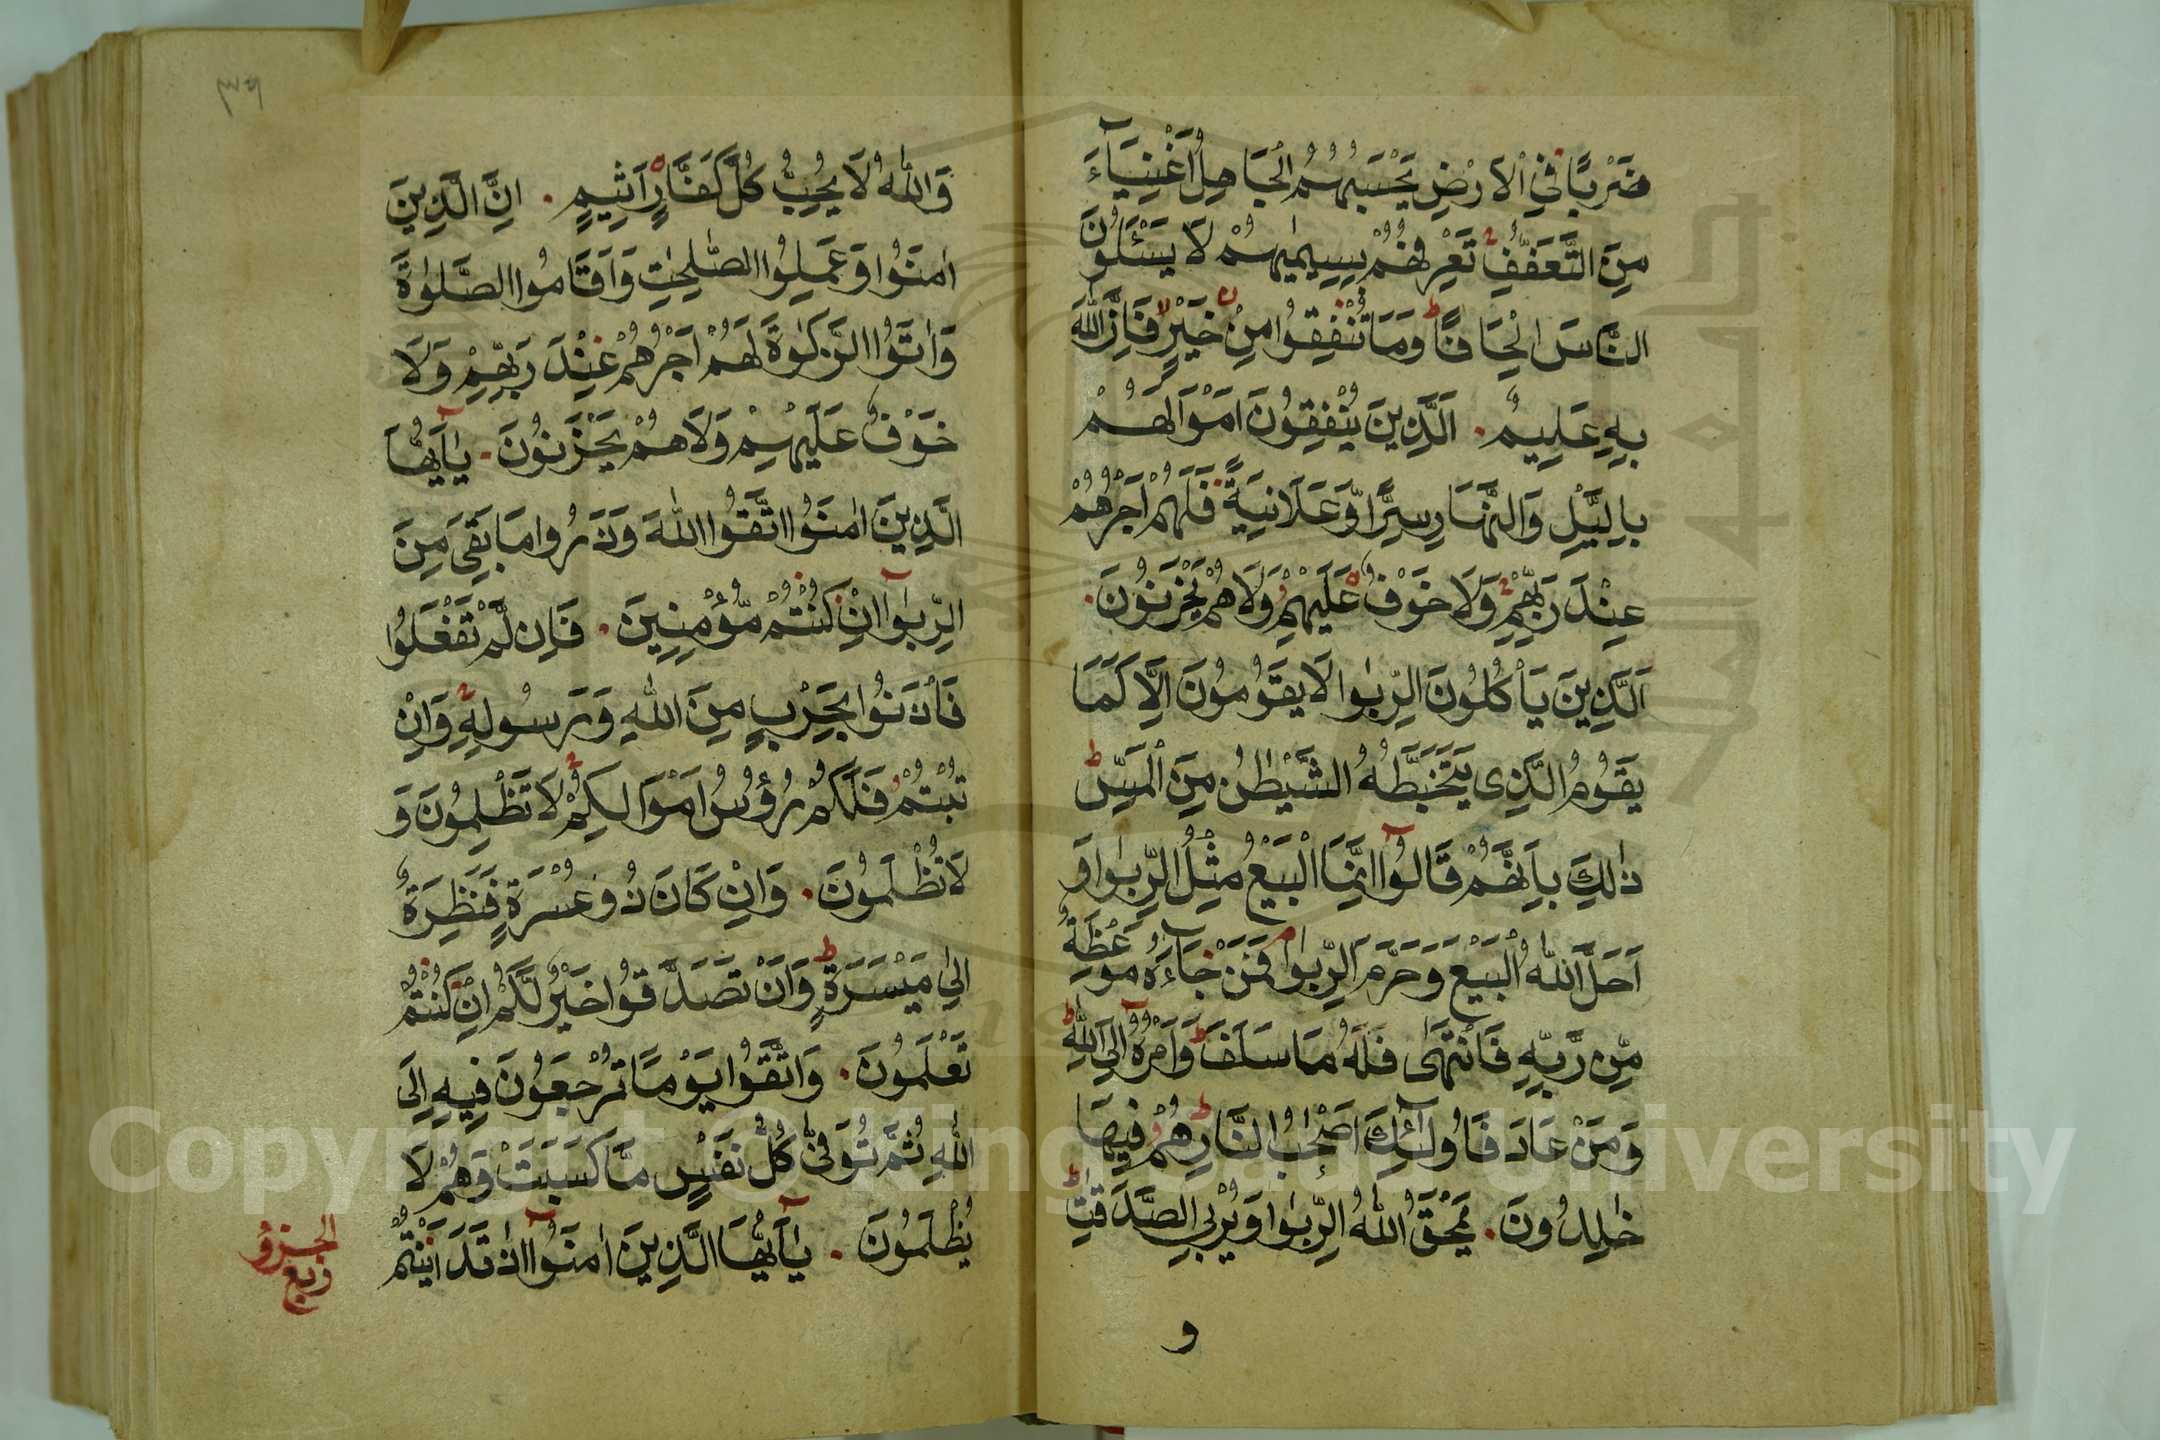 ضَرْبًا فِي الْاَرْضِ يَحْسَبُهُمُ الْجَاهِلُ اَغْنِيَآءَ
مِنَ التَّعَفُّفِ تَعْرِفُهُمْ بِسِيمٰيهُمْ لَا يَسْئَلُونَ
النَّاسَ اِلْحَافًا وَمَا تُنْفِقُوا مِنْ خَيْرٍ فَاِنَّ اللّٰهَ
بِهِ عَلِيمٌ. اَلَّذِينَ يُنْفِقُونَ اَمْوَالَهُمْ
بِالَّيْلِ وَالنَّهَارِ سِرًّا وَّعَلَانِيَةً فَلَهُمْ اَجْرُهُمْ
عِنْدَ رَبِّهِمْ وَلَا خَوْفٌ عَلَيْهِمْ وَلَا هُمْ يَحْزَنُونَ.
اَلَّذِينَ يَأْكُلُونَ الرِّبٰوا لَا يَقُومُونَ اِلَّا كَمَا
يَقُومُ الَّذِى يَتَخَبَّطُهُ الشَّيْطٰنُ مِنَ الْمَسِّ ط
ذٰلِكَ بِاَنَّهُمْ قَالُوآ اِنَّمَا الْبَيْعُ مِثْلُ الرِّبٰوا وَ
اَحَلَّ اللّٰهُ الْبَيْعَ وَحَرَّمَ الرِّبٰوا م فَمَنْ جَآءَهُ مَوْعِظَةٌ
مِّنْ رَّبِّهِ فَانْتَهٰى فَلَهُ مَا سَلَفَ ط وَاَمْرُهُ اِلَى اللّٰهِ ط
وَمَنْ عَادَ فَاُولٰٓئِكَ اَصْحٰبُ النَّارِ ط هُمْ فِيهَا
خٰلِدُونَ. يَمْحَقُ اللّٰهُ الرِّبٰوا وَيُرْبِي الصَّدَقٰتِ ط
و
٣٩
وَاللّٰهُ لَا يُحِبُّ كُلَّ كَفَّارٍ اَثِيمٍ. اِنَّ الَّذِينَ
اٰمَنُوا وَعَمِلُوا الصّٰلِحٰتِ وَاَقَامُوا الصَّلٰوةَ
وَاٰتَوُا الزَّكٰوةَ لَهُمْ اَجْرُهُمْ عِنْدَ رَبِّهِمْ وَلَا
خَوْفٌ عَلَيْهِمْ وَلَا هُمْ يَحْزَنُونَ. يٰٓاَيُّهَا
الَّذِينَ اٰمَنُوا اتَّقُوا اللّٰهَ وَذَرُوا مَا بَقِىَ مِنَ
الرِّبٰوآ اِنْ كُنْتُمْ مُّؤْمِنِينَ. فَاِن لَّمْ تَفْعَلُوا
فَأْذَنُوا بِحَرْبٍ مِنَ اللّٰهِ وَرَسُولِهِ وَاِنْ
تُبْتُمْ فَلَكُمْ رُؤُسُ اَمْوَالِكُمْ لَا تَظْلِمُونَ وَ
لَا تُظْلَمُونَ. وَاِنْ كَانَ ذُو عُسْرَةٍ فَنَظِرَةٌ
اِلٰى مَيْسَرَةٍ ط وَاَنْ تَصَدَّقُوا خَيْرٌ لَّكُمْ اِنْ كُنْتُمْ
تَعْلَمُونَ. وَاتَّقُوا يَوْمًا تُرْجَعُونَ فِيهِ اِلَى
اللّٰهِ ثُمَّ تُوَفّٰى كُلُّ نَفْسٍ مَّا كَسَبَتْ وَهُمْ لَا
يُظْلَمُونَ. يٰٓاَيُّهَا الَّذِينَ اٰمَنُوآ اِذَا تَدَايَنْتُمْ
الجزؤ
ربع
Copyright © King Saud University